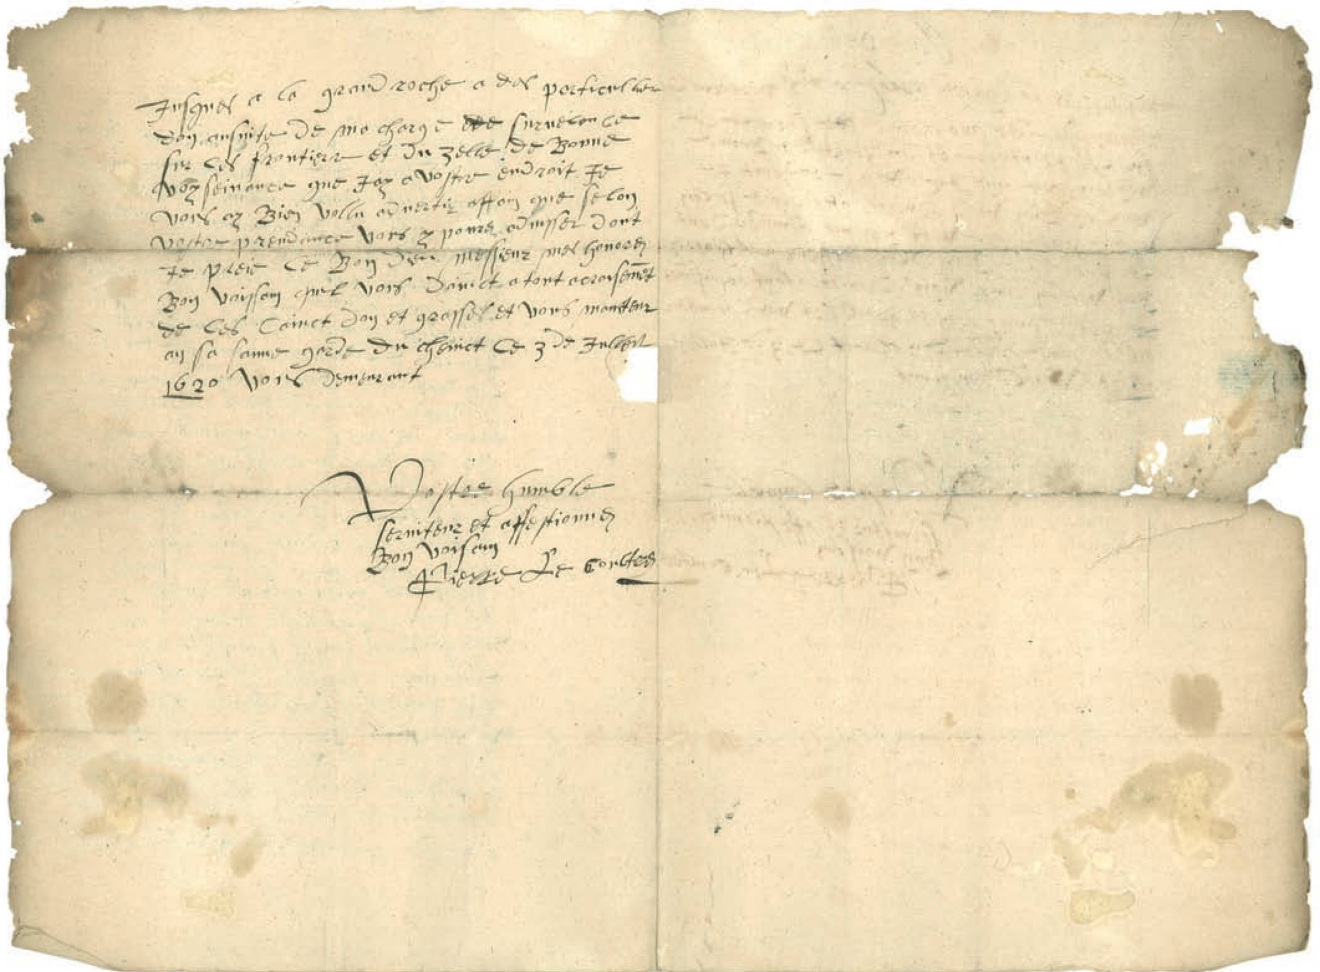 Jusques a la grand roche a des particullier
don ansuite de ma charge de survelance
sur les frontiere et du zelle de Bonne
voyseinance que Jay a vostre endroit Je
vous ay Bien vollu advertir affain que selon
vostre prendance vous y pourez advisser dont
Je preie le Bon dieu messieur mes honorez
Bon voissain quil vous
de ces sainct don et grasses et vous maintenir
an sa sainne garde du chenict ce 3 de Jullet
1620 vous demeurant
Vostre humble
serviteur et affestionnez
Bon voisain
Pierre Le Coultre